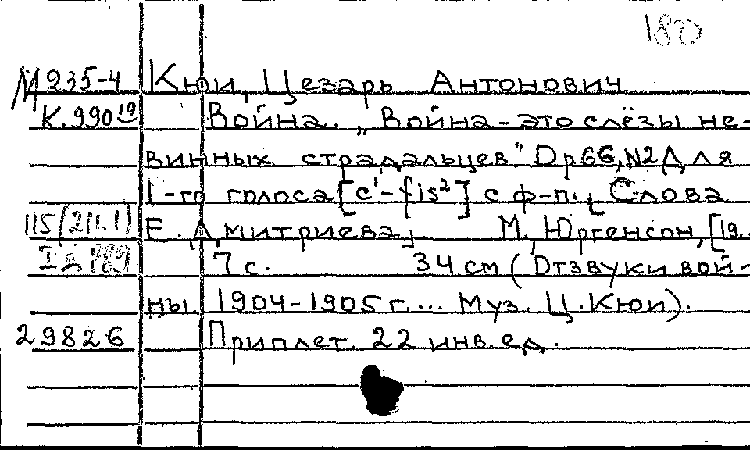 180
М 935-4 Кюи, Цезарь Антонович
К.990 19 Война. „Война - это слёзы не-
винных страдальцев." Op 66, N2 Для
1-го голоса [c¹-fis²] с ф-п. [Слова
115(211.1) Е. Дмитриева] М, Юргенсон, [19
7 с. 34 см (Отзвуки вой-
ны. 1904-1905 г... Муз. Ц. Кюи).
29826 Приплет. 22 инв. ед.